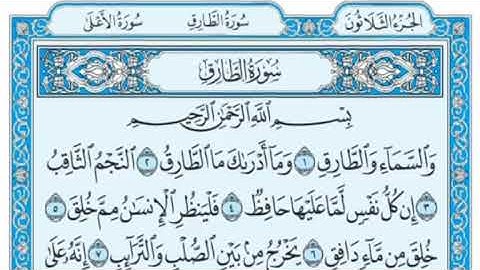 الجُزءُ الثَّلاثُونَ سُورَةُ الطَّارِقِ سُورَةُ الأَعْلَى
سُورَةُ الطَّارِقِ
بِسْمِ اللَّهِ الرَّحْمَنِ الرَّحِيمِ
وَالسَّمَاءِ وَالطَّارِقِ ١ وَمَا أَدْرَىٰكَ مَا الطَّارِقُ ٢ النَّجْمُ الثَّاقِبُ
٣ إِن كُلُّ نَفْسٍ لَّمَّا عَلَيْهَا حَافِظٌ ٤ فَلْيَنظُرِ الْإِنسَٰنُ مِمَّ خُلِقَ ٥
خُلِقَ مِن مَّاءٍ دَافِقٍ ٦ يَخْرُجُ مِنۢ بَيْنِ الصُّلْبِ وَالتَّرَائِبِ ٧ إِنَّهُ عَلَىٰ